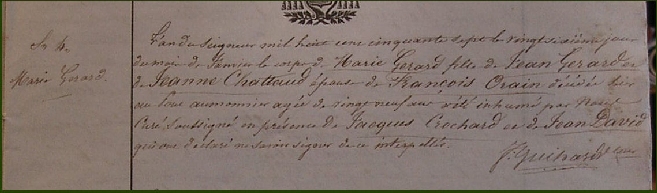 Sr de
Marie Gerard
L'an du Seigneur mil huit cent cinquante sept le vingt sixième jour
du mois de Janvier le corps de Marie Gerard fille de Jean Gerard et
de Jeanne Chattaud épouse de François Orain décédée hier
au Clos aumonier agée de vingt neuf ans a été inhumé par Nous
Curé Soussigné en présence de Jacques Crochard et de Jean David
qui ont déclaré ne savoir signer de ce interpellés.
J. Guihard